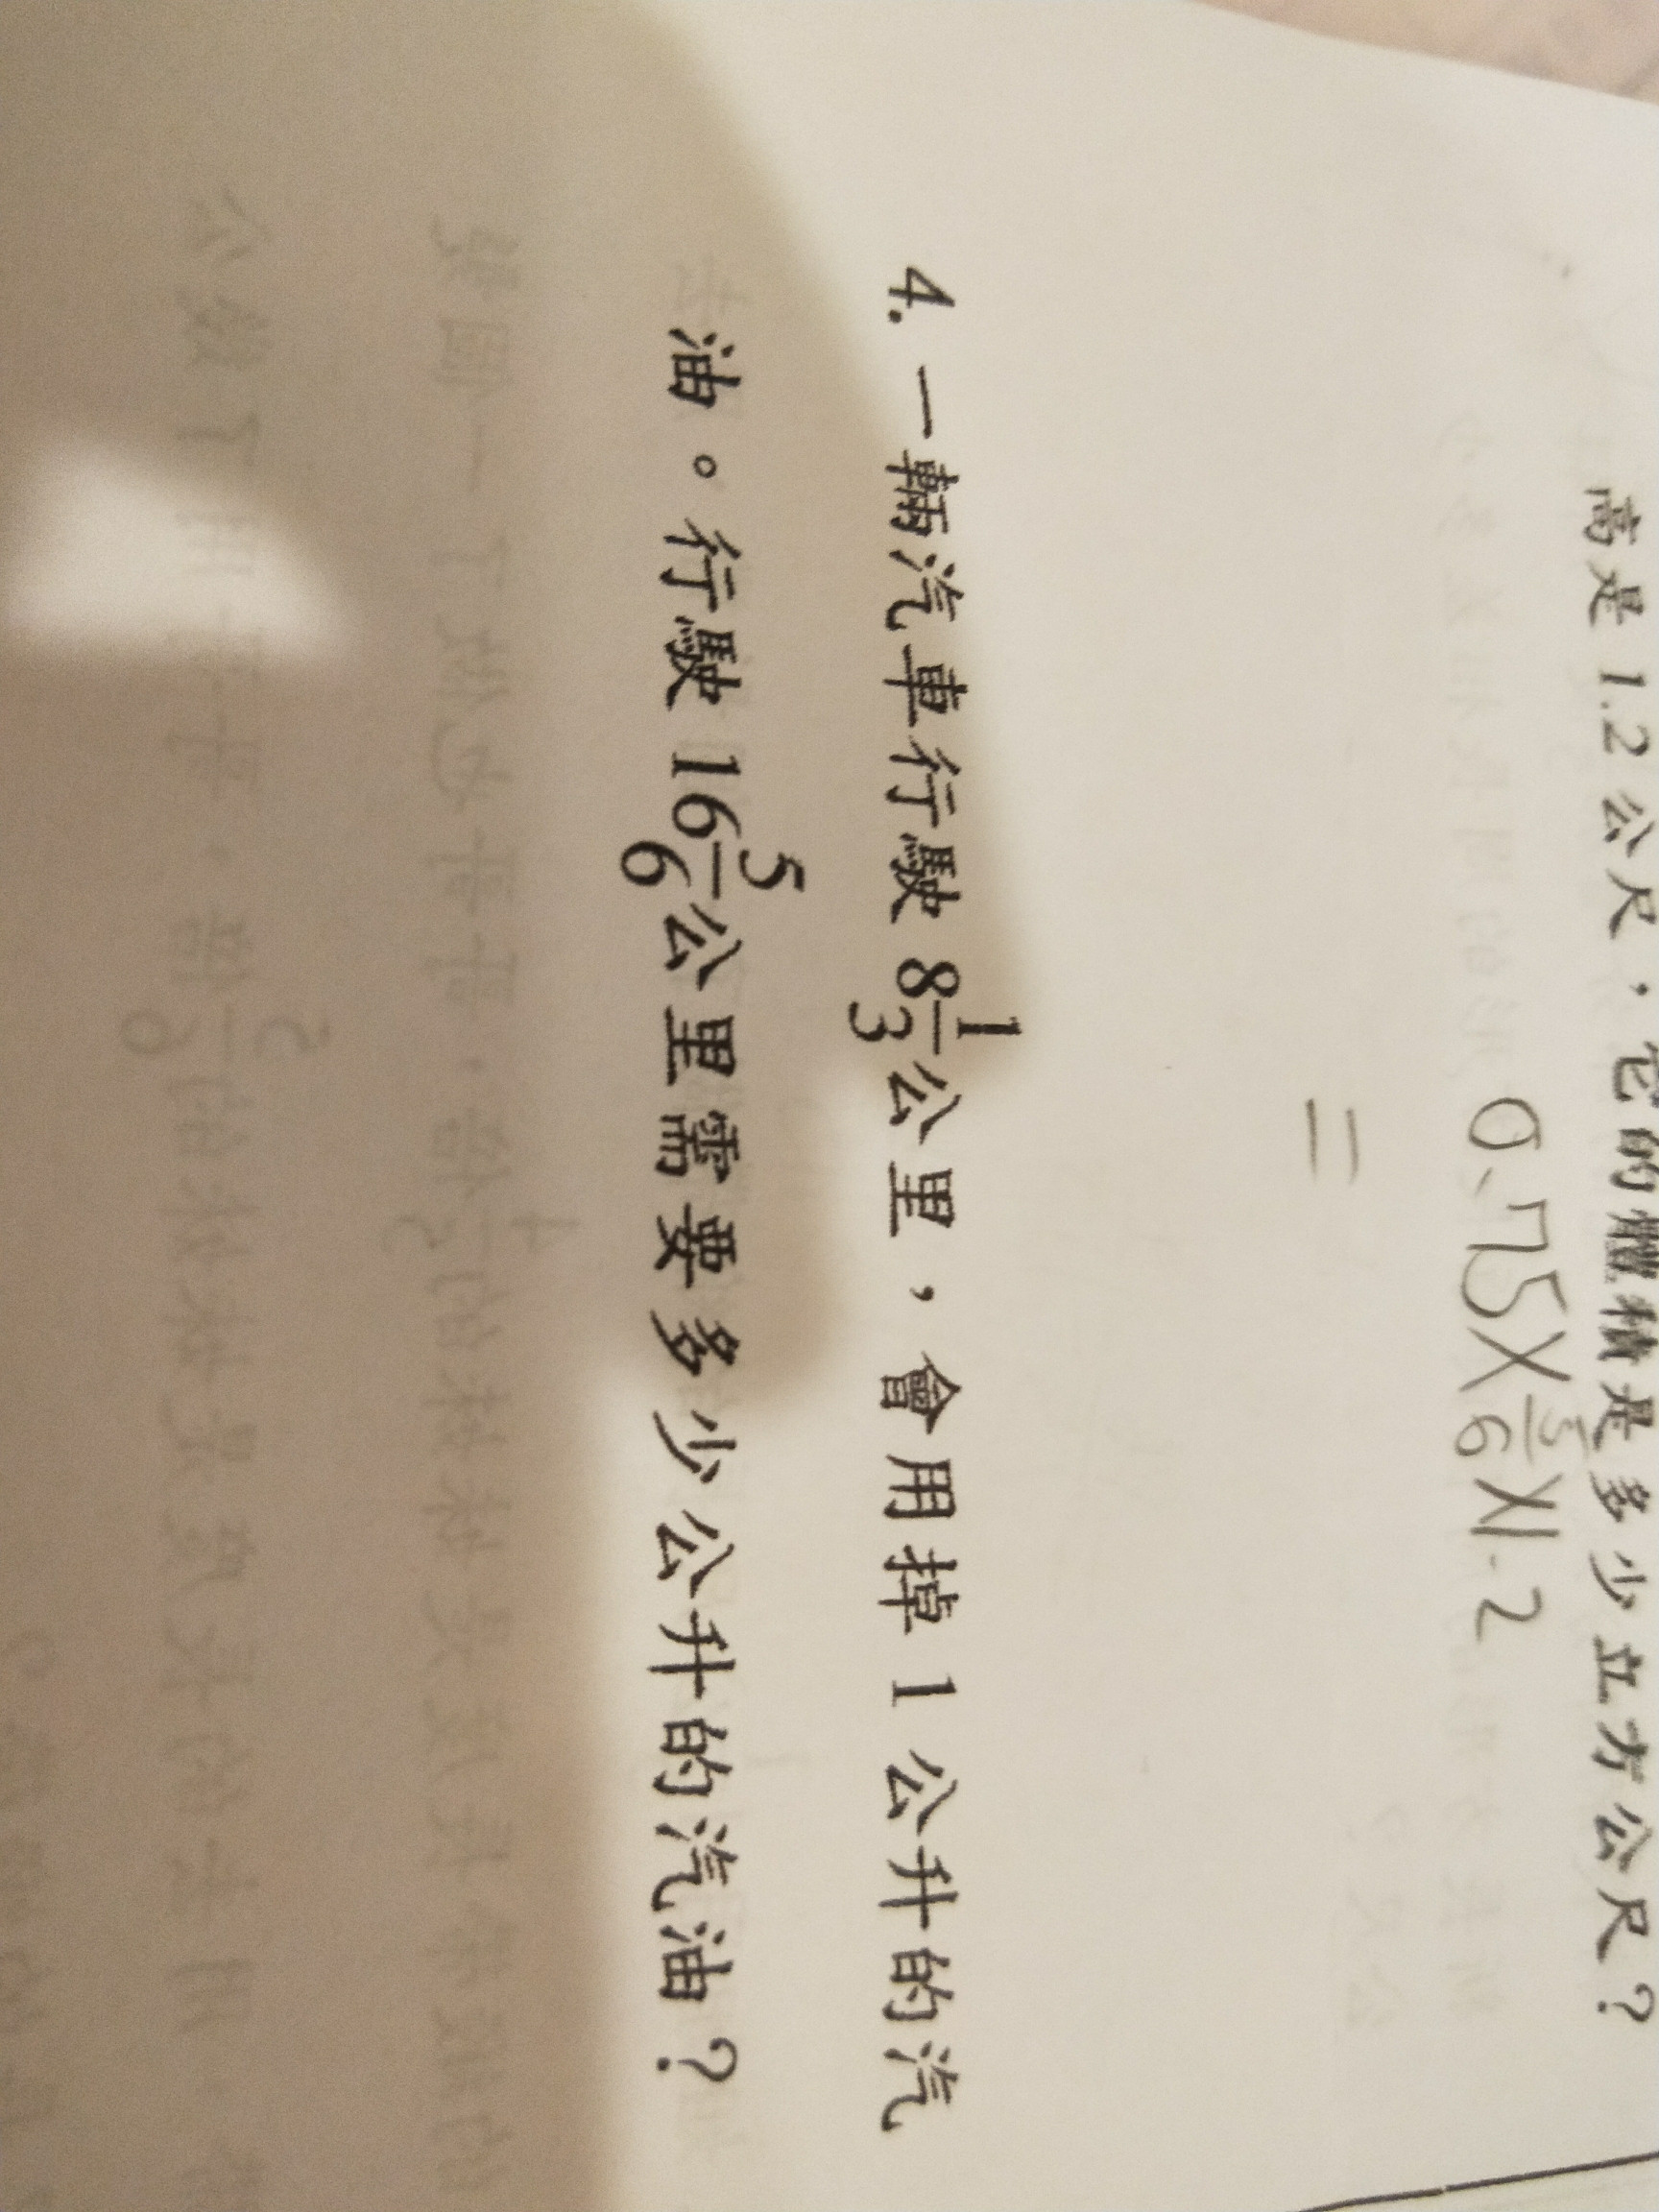 高是 1.2 公尺，它的體積是多少立方公尺？
0.75×5/6×1.2
=
4. 一輛汽車行駛 8 1/3 公里，會用掉 1 公升的汽
油。行駛 16 5/6 公里需要多少公升的汽油？